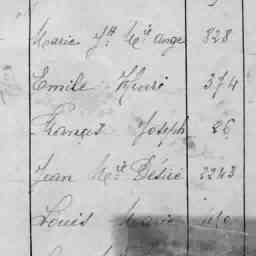 Marie Jh Mie ange 828
Emile Henri 374
François Joseph 26
Jean Mie Désiré 2243
Louis Marie